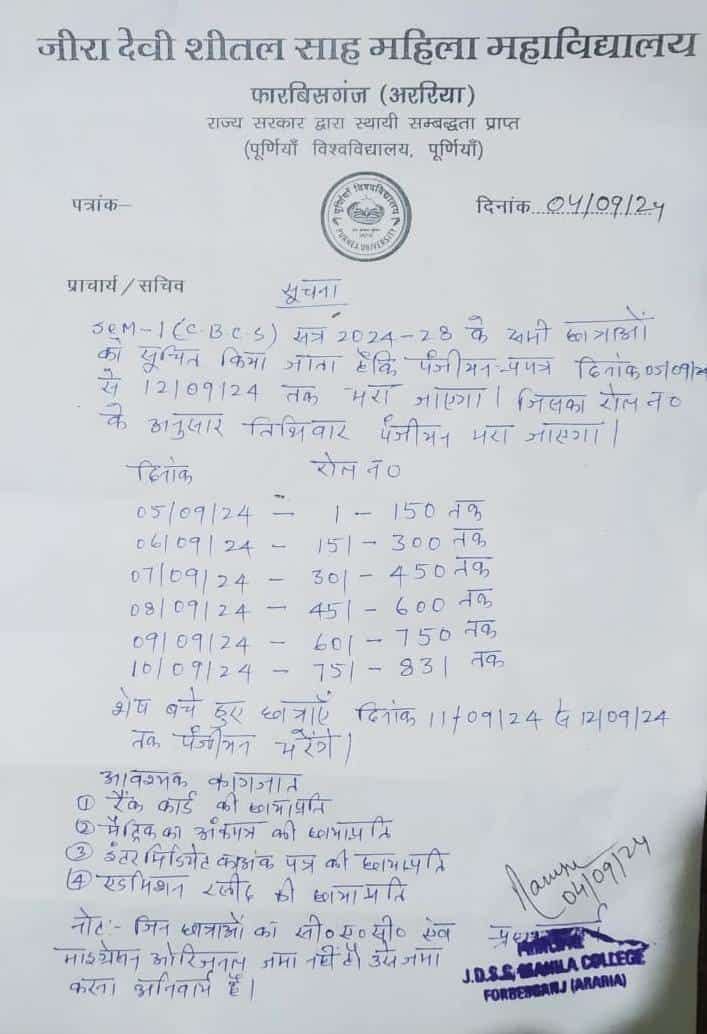 जीरा देवी शीतल साह महिला महाविद्यालय
फारबिसगंज (अररिया)
राज्य सरकार द्वारा स्थायी सम्बद्धता प्राप्त
(पूर्णियाँ विश्वविद्यालय, पूर्णियाँ)
पत्रांक–
दिनांक 04/09/24
पूर्णियाँ विश्वविद्यालय
PURNEA UNIVERSITY
प्राचार्य / सचिव
सूचना
SEM-1 (C.B.C.S) सत्र 2024-28 के सभी छात्राओं
को सूचित किया जाता है कि पंजीयन-प्रपत्र दिनांक 05/09/24
से 12/09/24 तक भरा जाएगा। जिसका रोल न०
के अनुसार तिथिवार पंजीयन भरा जाएगा।
दिनांक रोल न०
05/09/24 – 1 – 150 तक
06/09/24 – 151 – 300 तक
07/09/24 – 301 – 450 तक
08/09/24 – 451 – 600 तक
09/09/24 – 601 – 750 तक
10/09/24 – 751 – 831 तक
शेष बचे हुए छात्राएँ दिनांक 11/09/24 से 12/09/24
तक पंजीयन भरेंगे।
आवश्यक कागजात
① रैंक कार्ड की छायाप्रति
② मैट्रिक का अंकपत्र की छायाप्रति
③ इंटरमिडियेट का अंक पत्र की छायाप्रति
④ एडमिशन स्लीप की छायाप्रति
नोट:- जिन छात्राओं का सी०एल०सी० एंव
माइग्रेशन ओरिजनल जमा नहीं है उसे जमा
करना अनिवार्य है।
04/09/24
PRINCIPAL
J.D.S.S. MAHILA COLLEGE
FORBESGANJ (ARARIA)